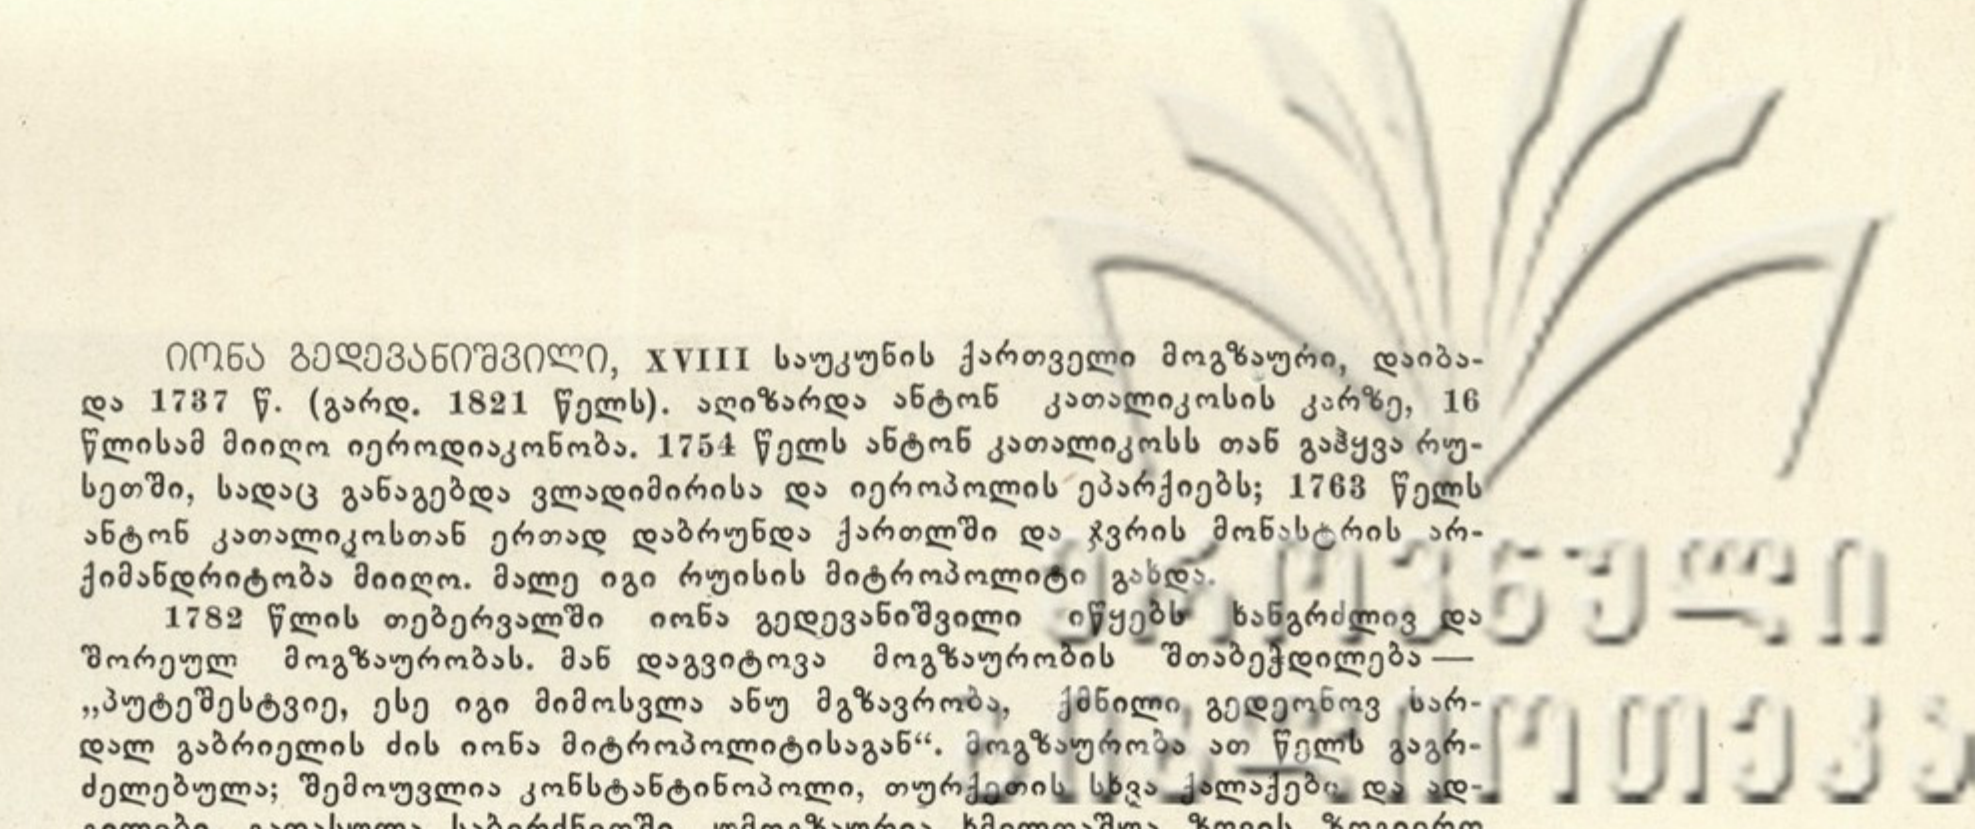 ᲘᲝᲜᲐ ᲒᲔᲓᲔᲕᲐᲜᲘᲨᲕᲘᲚᲘ, XVIII საუკუნის ქართველი მოგზაური, დაიბა-
და 1737 წ. (გარდ. 1821 წელს). აღიზარდა ანტონ კათალიკოსის კარზე, 16
წლისამ მიიღო იეროდიაკონობა. 1754 წელს ანტონ კათალიკოსს თან გაჰყვა რუ-
სეთში, სადაც განაგებდა ვლადიმირისა და იეროპოლის ეპარქიებს; 1763 წელს
ანტონ კათალიკოსთან ერთად დაბრუნდა ქართლში და ჯვრის მონასტრის არ-
ქიმანდრიტობა მიიღო. მალე იგი რუისის მიტროპოლიტი გახდა.
1782 წლის თებერვალში იონა გედევანიშვილი იწყებს ხანგრძლივ და
შორეულ მოგზაურობას. მან დაგვიტოვა მოგზაურობის შთაბეჭდილება —
„პუტეშესტვიე, ესე იგი მიმოსვლა ანუ მგზავრობა, ქმნილი გედეონოვ სარ-
დალ გაბრიელის ძის იონა მიტროპოლიტისაგან“. მოგზაურობა ათ წელს გაგრ-
ძელებულა; შემოუვლია კონსტანტინოპოლი, თურქეთის სხვა ქალაქები და ად-
ეროვნული
ბიბლიოთეკა